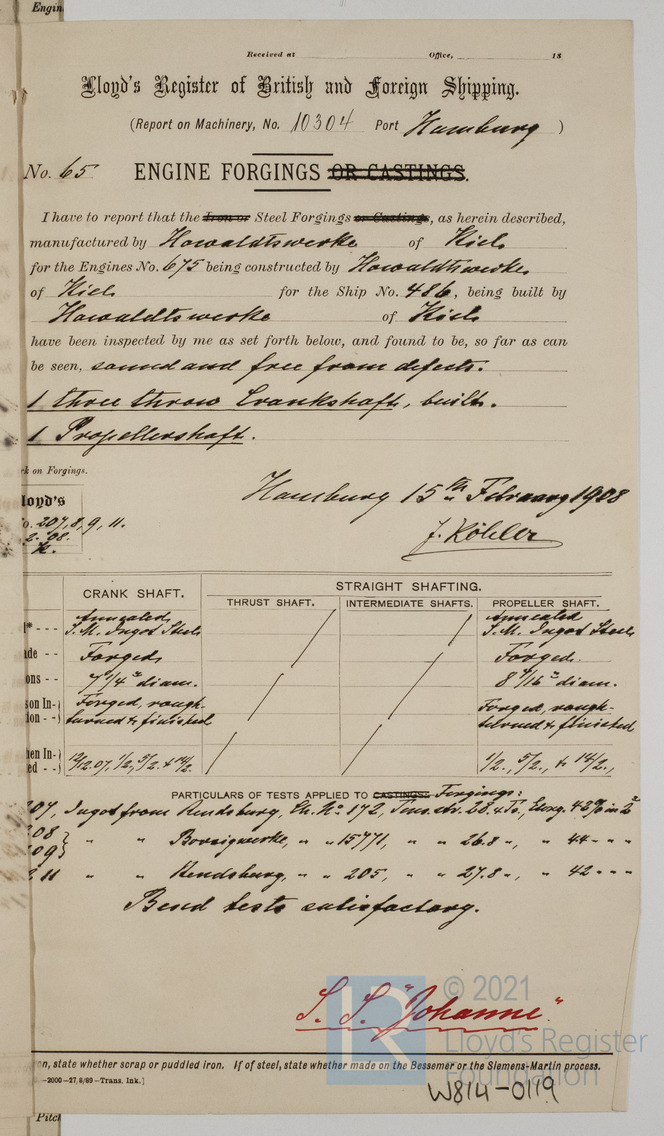 Engin
Received at Office, 18
Lloyd's Register of British and Foreign Shipping.
(Report on Machinery, No. 10304 Port Hamburg )
No. 65 ENGINE FORGINGS OR CASTINGS.
I have to report that the Iron or Steel Forgings or Castings, as herein described,
manufactured by Howaldtswerke of Kiel
for the Engines No. 675 being constructed by Howaldtswerke
of Kiel for the Ship No. 486, being built by
Howaldtswerke of Kiel
have been inspected by me as set forth below, and found to be, so far as can
be seen, sound and free from defects.
1 three throw Crankshaft, built.
1 Propellershaft.
rk on Forgings.
loyd's
o. 207,8,9,11.
2. 08.
K.
Hamburg 15th February 1908
J. Köhler
CRANK SHAFT. STRAIGHT SHAFTING.
THRUST SHAFT. INTERMEDIATE SHAFTS. PROPELLER SHAFT.
Annealed S.M. Ingot Steel Annealed S.M. Ingot Steel
ade -- Forged Forged.
ons -- diam. diam.
son In-) Forged, rough- Forged, rough-
tion --) turned & finished turned & finished
hen In-) 12/12.07, 1/2., 5/2. & 14/2. 1/2., 5/2., & 14/2.,
ed --)
PARTICULARS OF TESTS APPLIED TO CASTINGS: Forgings:
207, Ingot from Rendsburg, Ch. No. 172, Tens. str. 28.4 To., Elong. 43% in 2"
08 } " " Borsigwerke, " " 15771, " " 26.8 ", " 44 " " "
09 }
211 " " Rendsburg, " " 205, " " 27.8 ", " 42 " " "
Bend tests satisfactory.
S.S. "Johanne"
© 2021
LR
Lloyd's Register
Foundation
on, state whether scrap or puddled iron. If of steel, state whether made on the Bessemer or the Siemens-Martin process.
-2000-27,8/89-Trans. Ink.]
W814-0119
Pitch